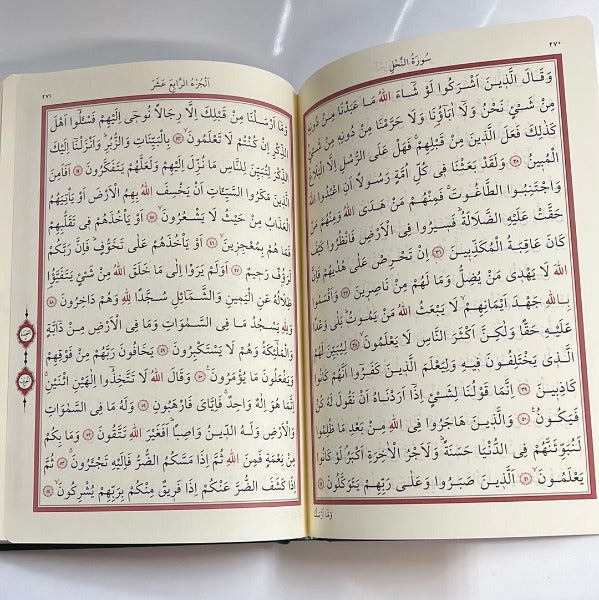 ٢٧٠
سُورَةُ النَّحْلِ
وَقَالَ الَّذٖينَ اَشْرَكُوا لَوْ شَٓاءَ اللّٰهُ مَا عَبَدْنَا مِنْ دُونِهٖ
مِنْ شَيْءٍ نَحْنُ وَلَٓا اٰبَٓاؤُ۬نَا وَلَا حَرَّمْنَا مِنْ دُونِهٖ مِنْ شَيْءٍ
كَذٰلِكَ فَعَلَ الَّذٖينَ مِنْ قَبْلِهِمْ فَهَلْ عَلَى الرُّسُلِ اِلَّا الْبَلَاغُ
الْمُبٖينُ ﴿٣٥﴾ وَلَقَدْ بَعَثْنَا فٖي كُلِّ اُمَّةٍ رَسُولًا اَنِ اعْبُدُوا اللّٰهَ
وَاجْتَنِبُوا الطَّاغُوتَ فَمِنْهُمْ مَنْ هَدَى اللّٰهُ وَمِنْهُمْ مَنْ
حَقَّتْ عَلَيْهِ الضَّلَالَةُ فَسٖيرُوا فِي الْاَرْضِ فَانْظُرُوا كَيْفَ
كَانَ عَاقِبَةُ الْمُكَذِّبٖينَ ﴿٣٦﴾ اِنْ تَحْرِصْ عَلٰى هُدٰيهُمْ فَاِنَّ
اللّٰهَ لَا يَهْدٖي مَنْ يُضِلُّ وَمَا لَهُمْ مِنْ نَاصِرٖينَ ﴿٣٧﴾ وَاَقْسَمُوا
بِاللّٰهِ جَهْدَ اَيْمَانِهِمْ لَا يَبْعَثُ اللّٰهُ مَنْ يَمُوتُ بَلٰى وَعْدًا
عَلَيْهِ حَقًّا وَلٰكِنَّ اَكْثَرَ النَّاسِ لَا يَعْلَمُونَ ﴿٣٨﴾ لِيُبَيِّنَ لَهُمُ
الَّذٖي يَخْتَلِفُونَ فٖيهِ وَلِيَعْلَمَ الَّذٖينَ كَفَرُٓوا اَنَّهُمْ كَانُوا
كَاذِبٖينَ ﴿٣٩﴾ اِنَّمَا قَوْلُنَا لِشَيْءٍ اِذَٓا اَرَدْنَاهُ اَنْ نَقُولَ لَهُ كُنْ
فَيَكُونُ ﴿٤٠﴾ وَالَّذٖينَ هَاجَرُوا فِي اللّٰهِ مِنْ بَعْدِ مَا ظُلِمُوا
لَنُبَوِّئَنَّهُمْ فِي الدُّنْيَا حَسَنَةً وَلَاَجْرُ الْاٰخِرَةِ اَكْبَرُ لَوْ كَانُوا
يَعْلَمُونَ ﴿٤١﴾ اَلَّذٖينَ صَبَرُوا وَعَلٰى رَبِّهِمْ يَتَوَكَّلُونَ ﴿٤٢﴾
وَمَٓا اَرْسَلْنَا
اَلْجُزْءُ الرَّابِعَ عَشَرَ
٢٧١
وَمَٓا اَرْسَلْنَا مِنْ قَبْلِكَ اِلَّا رِجَالًا نُوحٖٓي اِلَيْهِمْ فَسْـَٔلُٓوا اَهْلَ
الذِّكْرِ اِنْ كُنْتُمْ لَا تَعْلَمُونَ ﴿٤٣﴾ بِالْبَيِّنَاتِ وَالزُّبُرِ وَاَنْزَلْنَٓا اِلَيْكَ
الذِّكْرَ لِتُبَيِّنَ لِلنَّاسِ مَا نُزِّلَ اِلَيْهِمْ وَلَعَلَّهُمْ يَتَفَكَّرُونَ ﴿٤٤﴾ اَفَاَمِنَ
الَّذٖينَ مَكَرُوا السَّيِّـَٔاتِ اَنْ يَخْسِفَ اللّٰهُ بِهِمُ الْاَرْضَ اَوْ يَأْتِيَهُمُ
الْعَذَابُ مِنْ حَيْثُ لَا يَشْعُرُونَ ﴿٤٥﴾ اَوْ يَأْخُذَهُمْ فٖي تَقَلُّبِهِمْ
فَمَا هُمْ بِمُعْجِزٖينَ ﴿٤٦﴾ اَوْ يَأْخُذَهُمْ عَلٰى تَخَوُّفٍ فَاِنَّ رَبَّكُمْ
لَرَؤُ۫فٌ رَحٖيمٌ ﴿٤٧﴾ اَوَلَمْ يَرَوْا اِلٰى مَا خَلَقَ اللّٰهُ مِنْ شَيْءٍ يَتَفَيَّؤُ۬ا
ظِلَالُهُ عَنِ الْيَمٖينِ وَالشَّمَٓائِلِ سُجَّدًا لِلّٰهِ وَهُمْ دَاخِرُونَ ﴿٤٨﴾
وَلِلّٰهِ يَسْجُدُ مَا فِي السَّمٰوَاتِ وَمَا فِي الْاَرْضِ مِنْ دَٓابَّةٍ
وَالْمَلٰٓئِكَةُ وَهُمْ لَا يَسْتَكْبِرُونَ ﴿٤٩﴾ يَخَافُونَ رَبَّهُمْ مِنْ فَوْقِهِمْ
وَيَفْعَلُونَ مَا يُؤْمَرُونَ ﴿٥٠﴾ وَقَالَ اللّٰهُ لَا تَتَّخِذُٓوا اِلٰهَيْنِ اثْنَيْنِ
اِنَّمَا هُوَ اِلٰهٌ وَاحِدٌ فَاِيَّايَ فَارْهَبُونِ ﴿٥١﴾ وَلَهُ مَا فِي السَّمٰوَاتِ
وَالْاَرْضِ وَلَهُ الدّٖينُ وَاصِبًا اَفَغَيْرَ اللّٰهِ تَتَّقُونَ ﴿٥٢﴾ وَمَا بِكُمْ
مِنْ نِعْمَةٍ فَمِنَ اللّٰهِ ثُمَّ اِذَا مَسَّكُمُ الضُّرُّ فَاِلَيْهِ تَجْـَٔرُونَ ﴿٥٣﴾ ثُمَّ
اِذَا كَشَفَ الضُّرَّ عَنْكُمْ اِذَا فَرٖيقٌ مِنْكُمْ بِرَبِّهِمْ يُشْرِكُونَ ﴿٥٤﴾